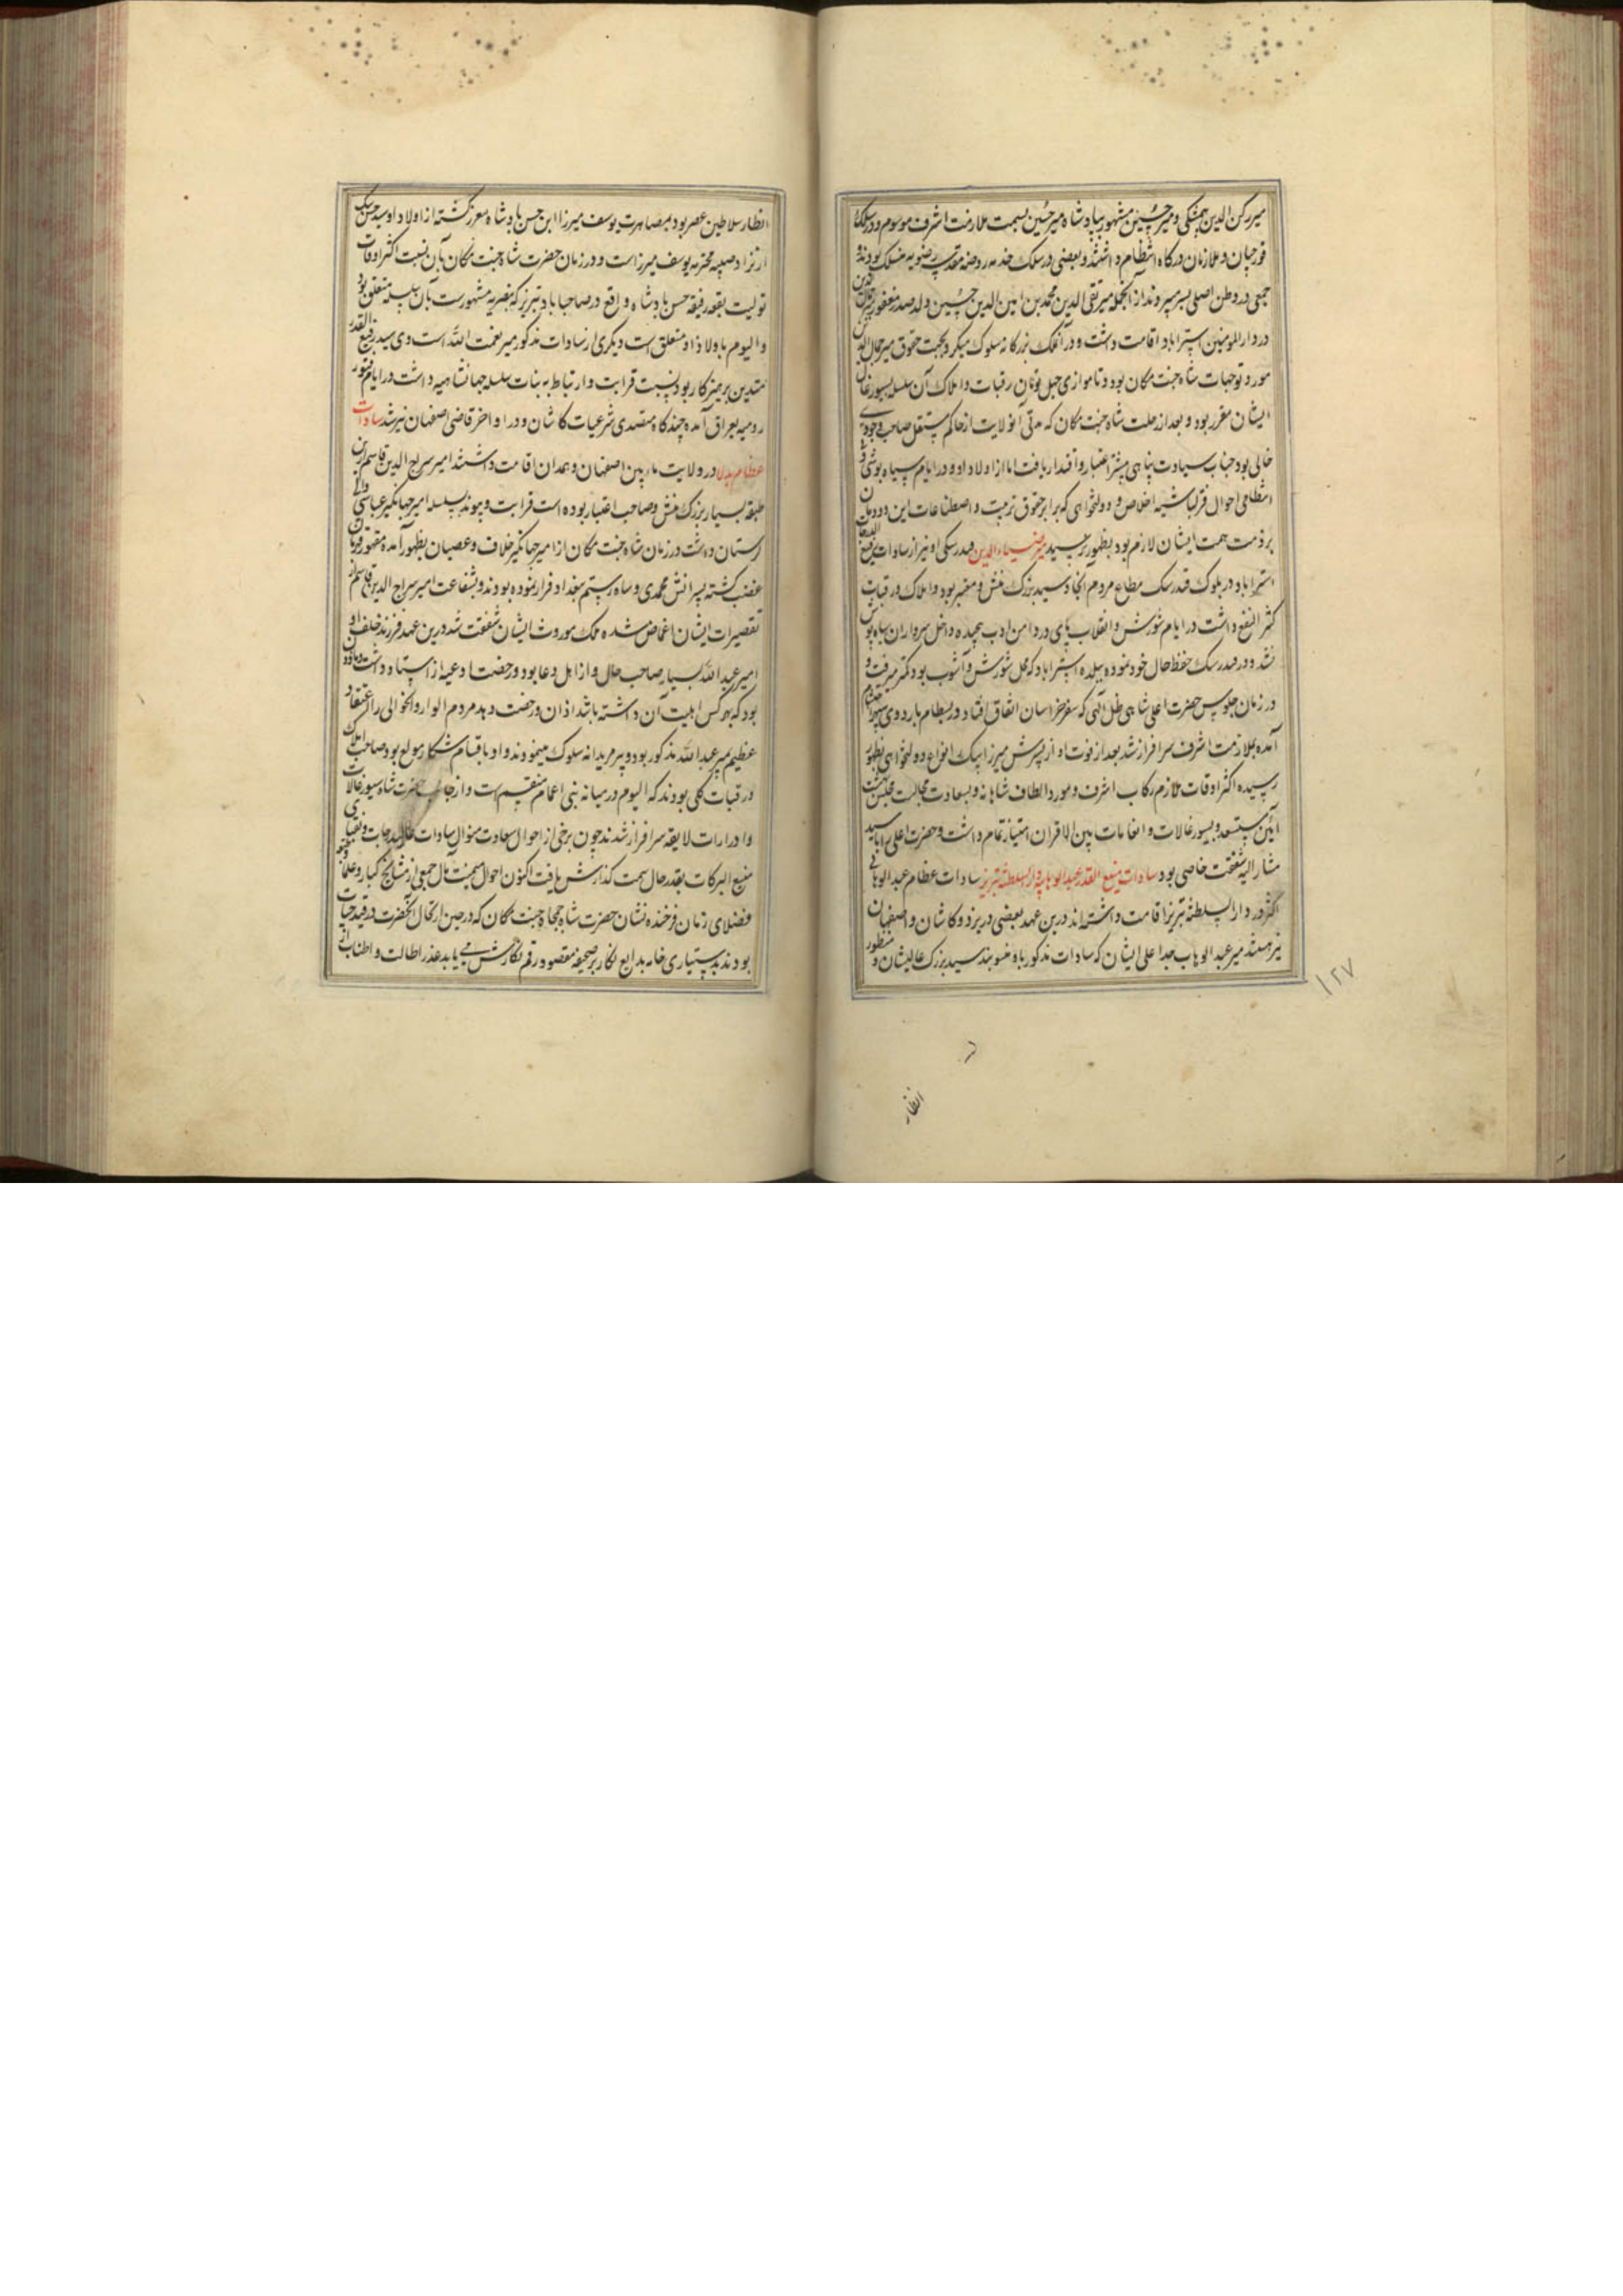 میر رکن الدین و میر حسین مشهور بپادشاه میر حسین بسمت ملازمت اشرف موسوم و در سلک
قورچیان و ملازمان درگاه انتظام داشتند و بعضی در سلک خدمه روضه مقدسه رضویه منسلک بودند و
جمعی در وطن اصلی بسر میبردند از آنجمله میر تقی الدین محمد بن امین الدین حسین ولد صدر مغفور
در دار المومنین استراباد اقامت داشت و در آنملک بزرگانه سلوک میکرد بجهت حقوق میر جمال الدین
مورد توجهات شاه جنت مکان بود و تا موازی چهل تومان رقبات و املاک آن سلسله بسیورغال
ایشان مقرر بود و بعد از رحلت شاه جنت مکان که مدتی آنولایت از حاکم مستقل صاحب وجودی
خالی بود جناب سیادت پناهی بیشتر اعتبار و اقتدار یافت اما از اولاد او در ایام سیاه پوشی و
انتظامی احوال قزلباشیه اخلاص و دولتخواهی که برابر حقوق تربیت و اصطناعات این دودمان
بر ذمت همت ایشان لازم بود بظهور نرسید میر ضیاء الدین فندرسکی او نیز از سادات رفیع الدرجات
استراباد در بلوک فندرسک مطاع مردم آنجا و سید بزرگ منش و معتبر بود و املاک و رقبات
کثیر النفع داشت در ایام شورش و انقلاب پای در دامن ادب پیچیده داخل سرداران سیاه پوش
نشد و در فندرسک حفظ حال خود نموده ببلده استراباد که محل شورش و آشوب بود کمتر میرفت و
در زمان جلوس حضرت اعلی شاهی ظل آلهی که سفر خراسان اتفاق افتاد در بسطام باردوی
آمده بملازمت اشرف سرافراز شد بعد از فوت او از پسرش میرزا بیک انواع دولتخواهی بظهور
رسیده اکثر اوقات ملازم رکاب اشرف و مورد الطاف شاهانه و بسعادت مجالست مجلس بهشت
آئین مستعد و بسیورغالات و انعامات بین الاقران امتیاز تمام داشت و حضرت اعلی را با سید
مشار الیه شفقت خاصی بود سادات منیع القدر عبد الوهابیه دار السلطنه تبریز سادات عظام عبد الوهابی
اکثر در دار السلطنه تبریز اقامت داشته اند درین عهد بعضی در یزد و کاشان و اصفهان
نیز هستند میر عبد الوهاب جد اعلی ایشان که سادات مذکور باو منسوبند سید بزرگ عالیشان و منظور
۱۲۷
انظار
انظار سلاطین عصر بود بمصاهرت یوسف میرزا ابن حسن پادشاه معزز گشته از اولاد او سید حسن بیک
از نژاد صبیه محترمه یوسف میرزاست و در زمان حضرت شاه جنت مکان بآن نسبت اکثر اوقات
تولیت بقعه رفیعه حسن پادشاه واقع در صاحباباد تبریز که بنصریه مشهور است بآن سلسله متعلق بود
و الیوم باولاد او متعلق است دیگری از سادات مذکور میر نعمت الله است وی سید رفیع القدر
متدین پرهیزکار بود بنسبت قرابت و ارتباط به بنات سلسله جهانشاهیه داشت در ایام فتور
رومیه بعراق آمده چندگاه متصدی شرعیات کاشان و در اواخر قاضی اصفهان نیز شد سادات
عظام در ولایت مابین اصفهان و همدان اقامت داشتند امیر سراج الدین قاسم ازین
طبقه بسیار بزرگ منش و صاحب اعتبار بوده است قرابت و پیوند بسلسله امیر جهانگیر عباسی والی
لرستان داشت در زمان شاه جنت مکان از امیر جهانگیر خلاف و عصیان بظهور آمده مقهور فرمان
غضب گشته پسرانش محمدی و شاه رستم ببغداد فرار نموده بودند و بشفاعت امیر سراج الدین قاسم از
تقصیرات ایشان اغماض شده ملک موروث ایشان شفقت شد درین عهد فرزند خلف او
امیر عبد الله بسیار صاحب حال و از اهل دعا بود و رخصت ادعیه از استاد داشت و ماذون
بود که بهر کس اهلیت آن داشته باشد اذن و رخصت دهد مردم الوار و آنحوالی را اعتقاد
عظیم بمیر عبد الله مذکور بود و پیر مریدانه سلوک مینمودند و او باقسام شکار مولع بود صاحب املاک
و رقبات کلی بودند که الیوم در میانه بنی اعمام منقسم است و از جانب حضرت شاه بسیورغالات
و ادرارات لایقه سرافراز شدند چون برخی از احوال سعادت منوال سادات عالیدرجات و نقبای
منبع البرکات بقدر حال سمت گذارش یافت اکنون احوال میمنت مآل جمعی از مشایخ کبار و علما و
فضلای زمان فرخنده نشان حضرت شاه جمجاه جنت مکان که در حین ارتحال آنحضرت در قید حیات
بودند بدستیاری خامه بدایع نگار بر صحیفه مقصود رقم نگارش می یابد عذر اطالت و اطناب از